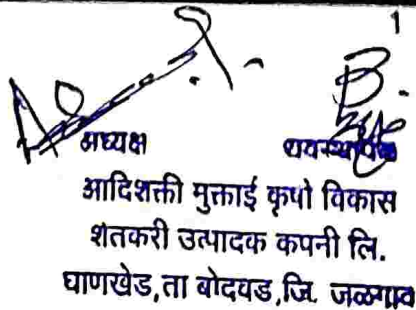 1
अध्यक्ष व्यवस्थापक
आदिशक्ती मुक्ताई कृषी विकास
शेतकरी उत्पादक कंपनी लि.
घाणखेड,ता बोदवड,जि. जळगाव